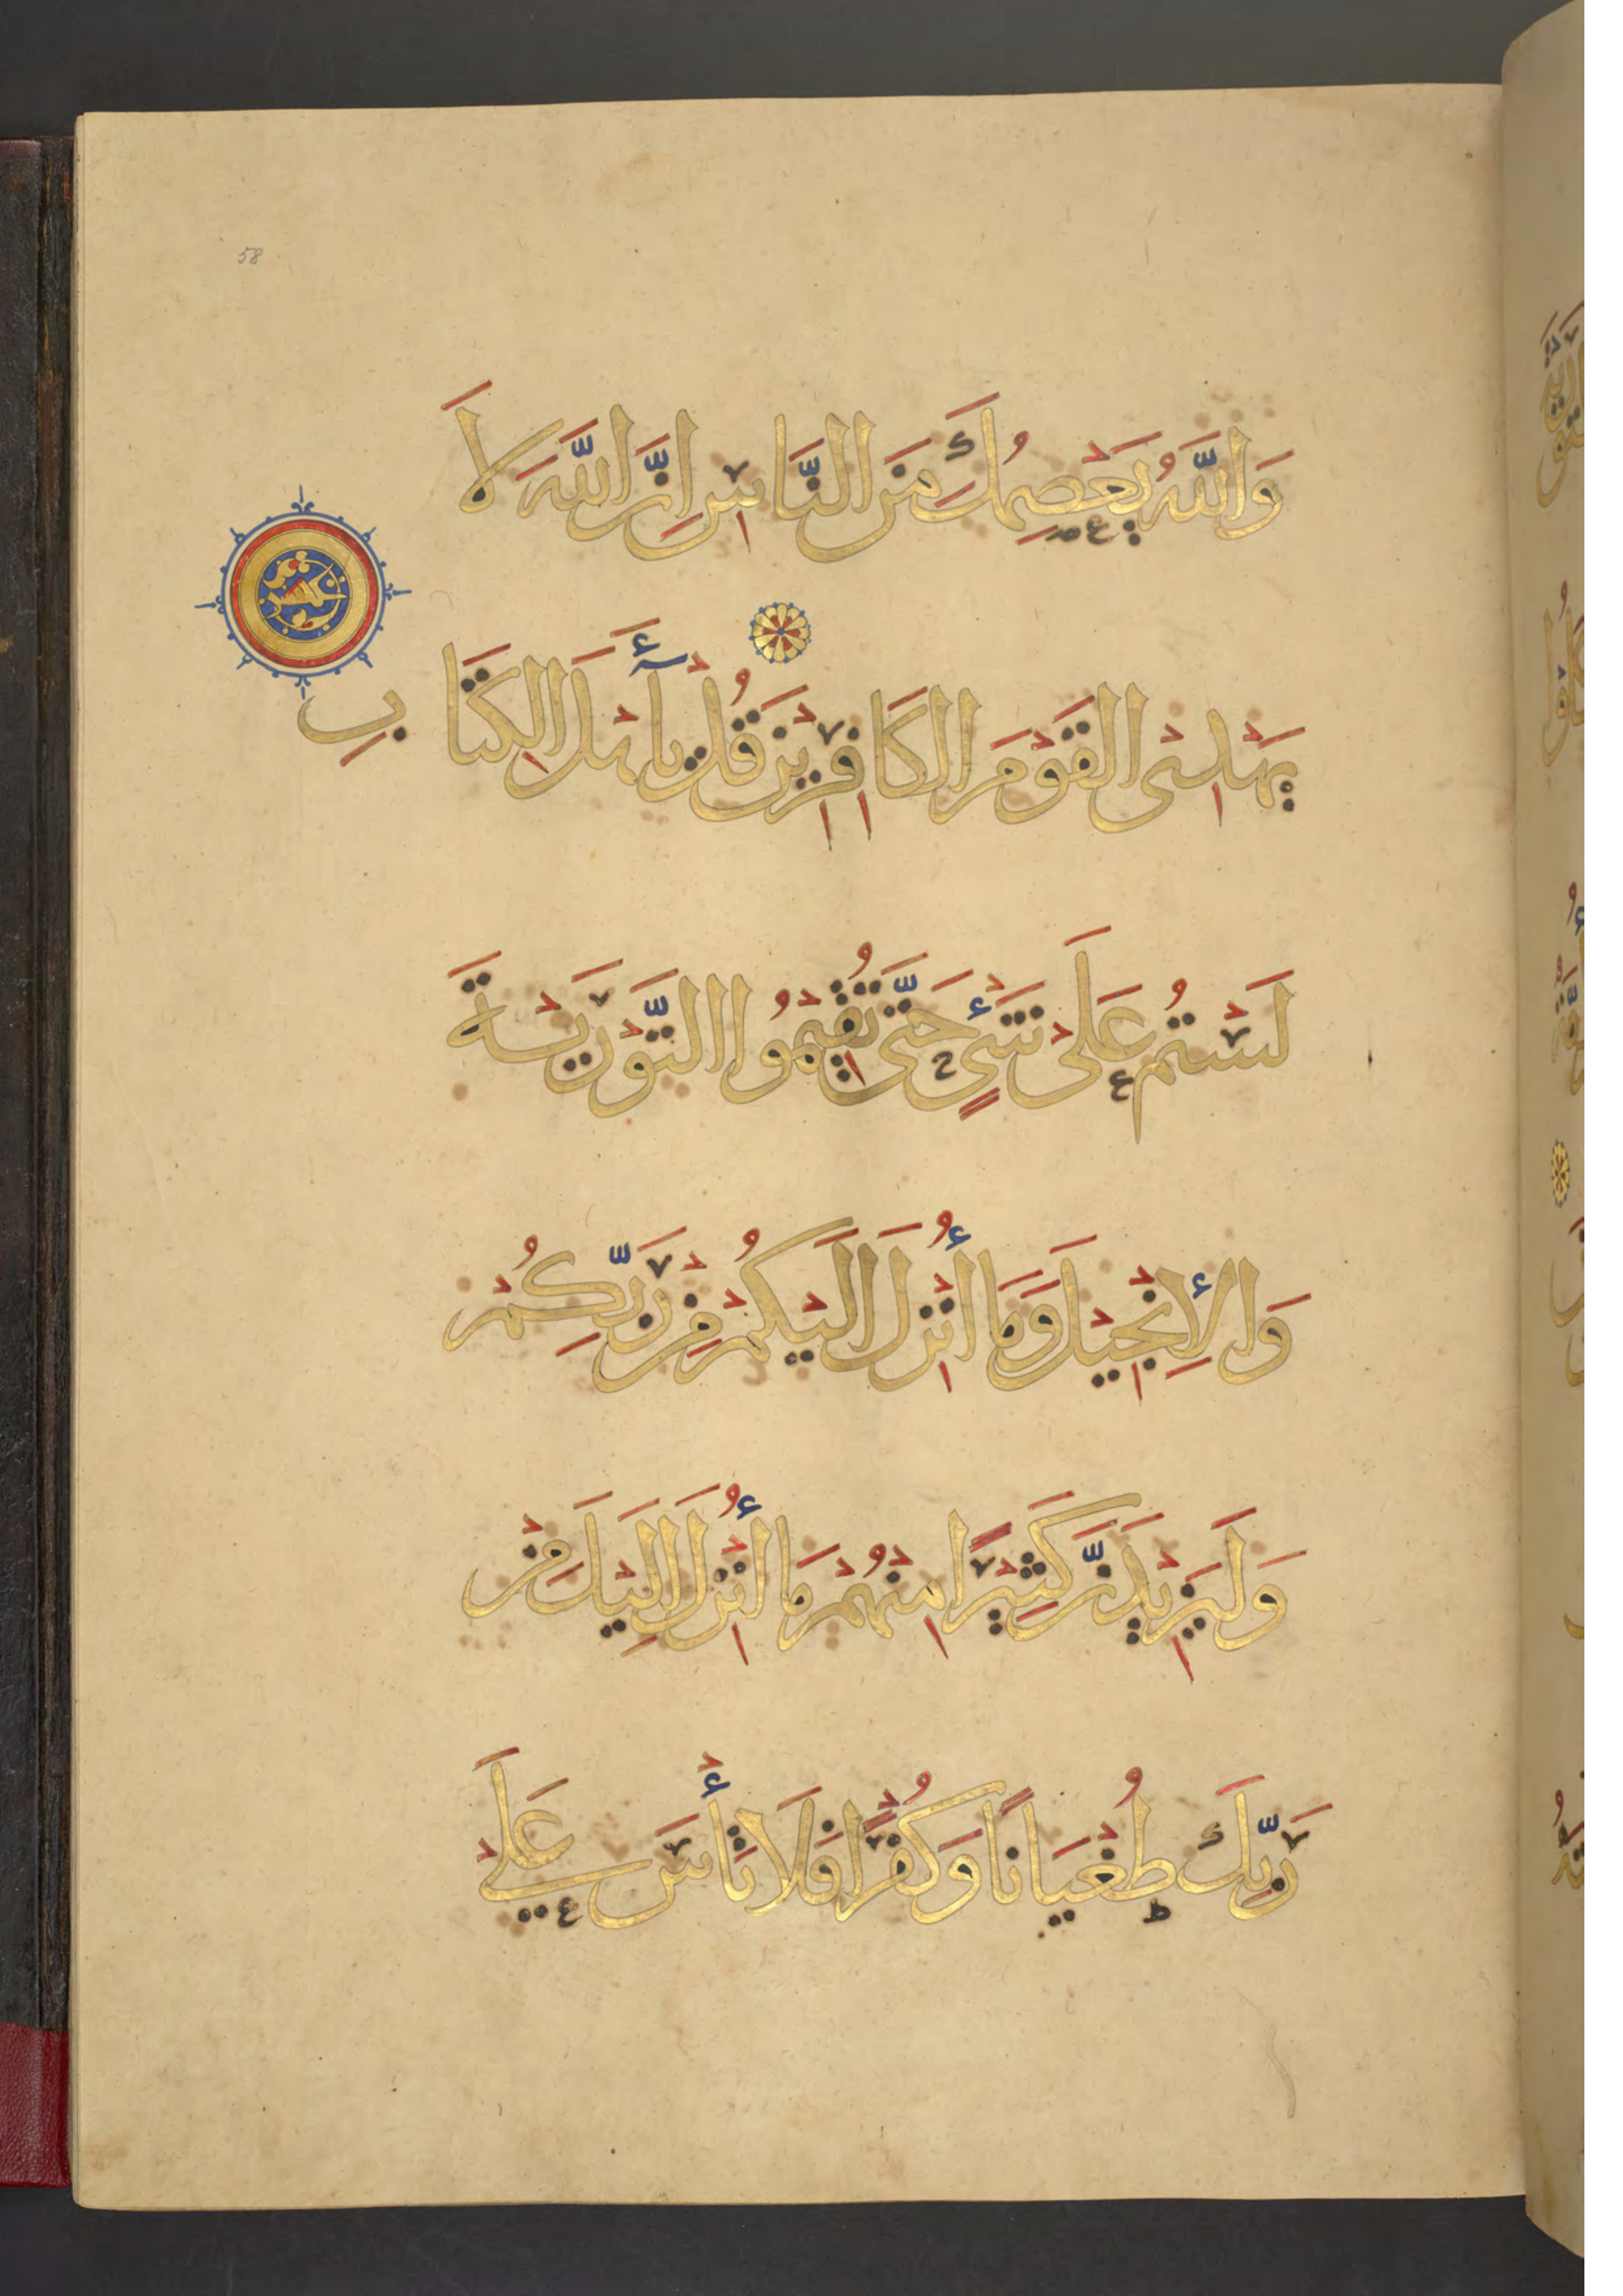 58
وَاللَّهُ يَعْصِمُكَ مِنَ النَّاسِ اِنَّ اللَّهَ لَا
يَهْدِى الْقَوْمَ الْكَافِرِيْنَ قُلْ يَآ أَهْلَ الْكِتَا بِ
لَسْتُمْ عَلَى شَىْءٍ حَتَّى تُقِيْمُوْا التَّوْرَيةَ
وَالْأِنْجِيْلَ وَمَا أُنْزِلَ اِلَيْكُمْ مِنْ رَبِّكُمْ
وَلَيَزِيْدَنَّ كَثِيْرًا مِنْهُمْ مَا أُنْزِلَ اِلَيْكَ مِنْ
رَبِّكَ طُغْيَانًا وَكُفْرًا فَلَا تَأْسَ عَلَي